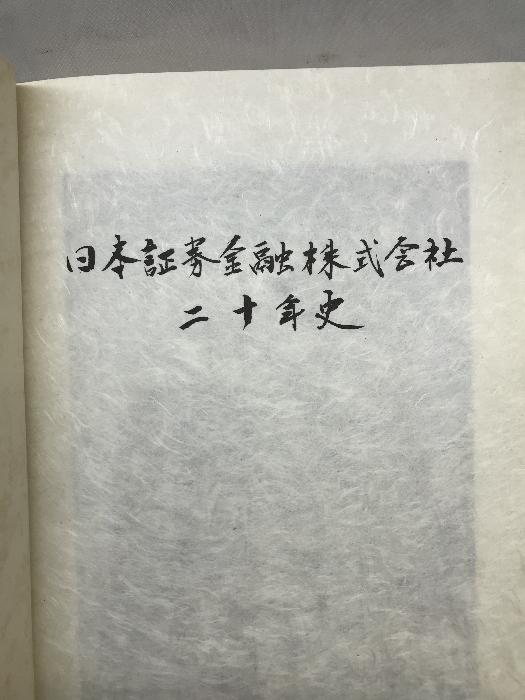 日本証券金融株式会社
二十年史